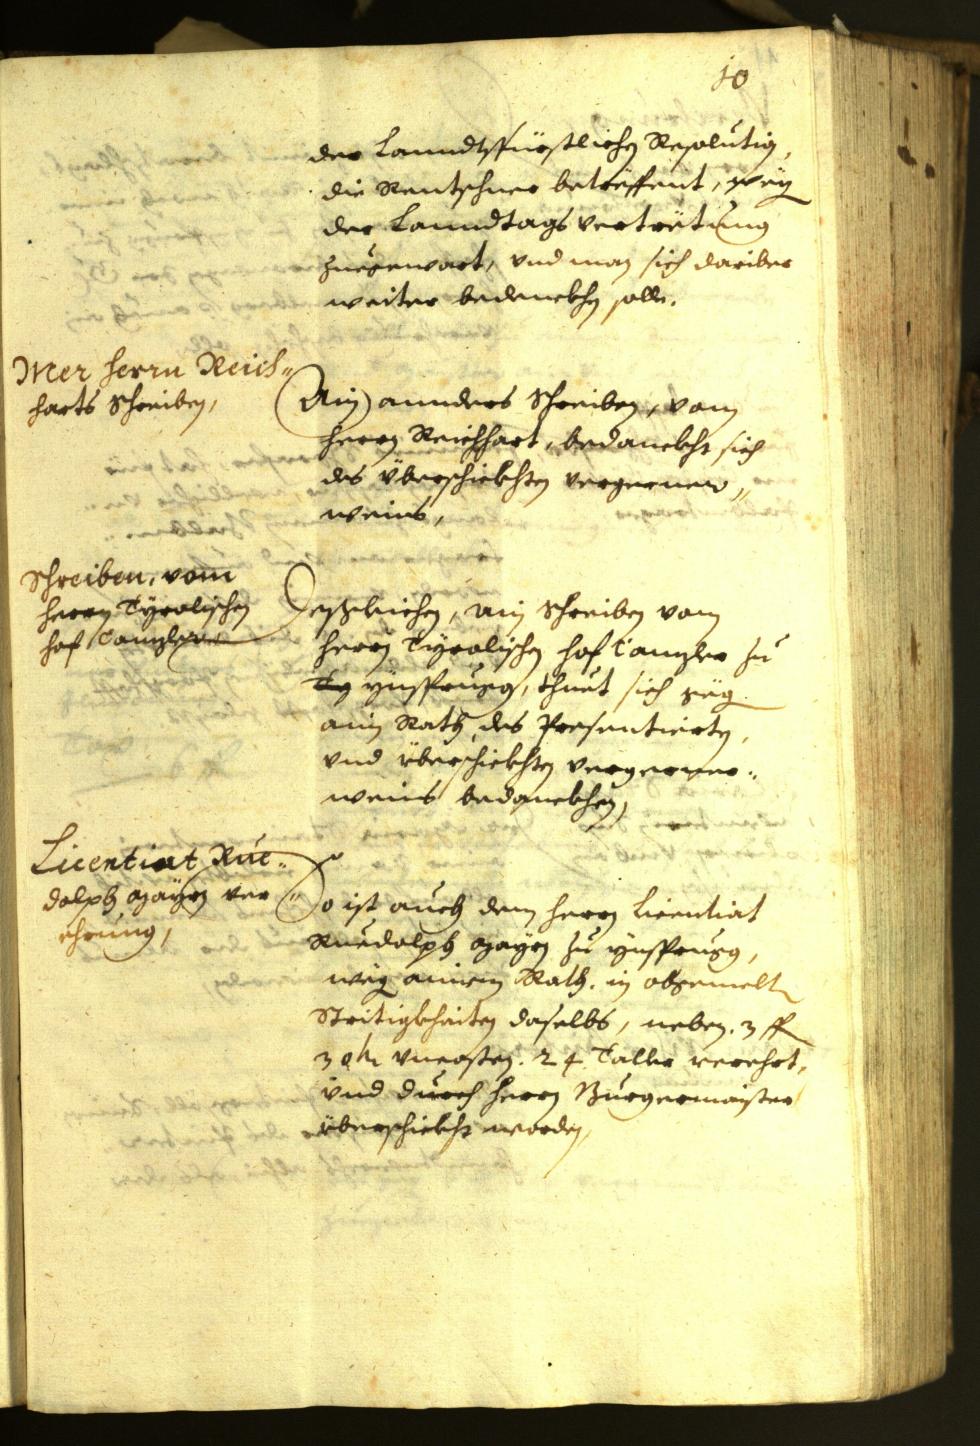 10
der Lanndtsfürstlichen Resolution,
die Rentschner betreffent, weg
der Lanndtags vertrettung
zuerwart, vnd man sich dariber
weiter bedenckhen solle.
Mer herrn Reich-
harts Schreiben,
Ain annders Schreiben, vom
herrn Reichhart, bedanckht sich
des überschickhten vergerner-
weins,
Schreiben, vom
herrn Tÿrolischen
hof Canzler
Deßgleichen, ain Schreiben vom
herrn Tÿrolischen hof Canzler zu
Ynsprugg, thuet sich geg
aim Rath, des Presentierten,
vnd überschickhten vergerner-
weins bedanckhen,
Licentiat Rue-
dolph Mayrn ver-
ehrung,
So ist auch dem herrn Licentiat
Ruedolph Mayrn zu Ynsprugg,
weg ainem Rath, in obgemelt
Strittigkhaiten daselbs, neben. 3 ff
vnd durch herrn Burgermaister
überschickht worden,